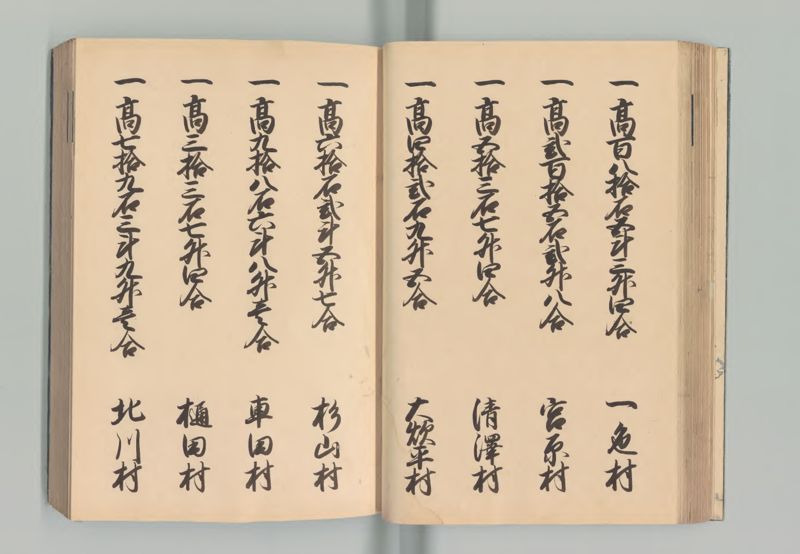 一高百八拾石五斗三升四合 一色村
一高弐百拾五石弐升八合 宮原村
一高五拾三石七升四合 清澤村
一高四拾弐石九升五合 大煩平村
一高六拾石弐斗五升七合 杉山村
一高九拾八石六斗八升壱合 車田村
一高三拾三石七升四合 樋田村
一高七拾九石三斗九升壱合 北川村